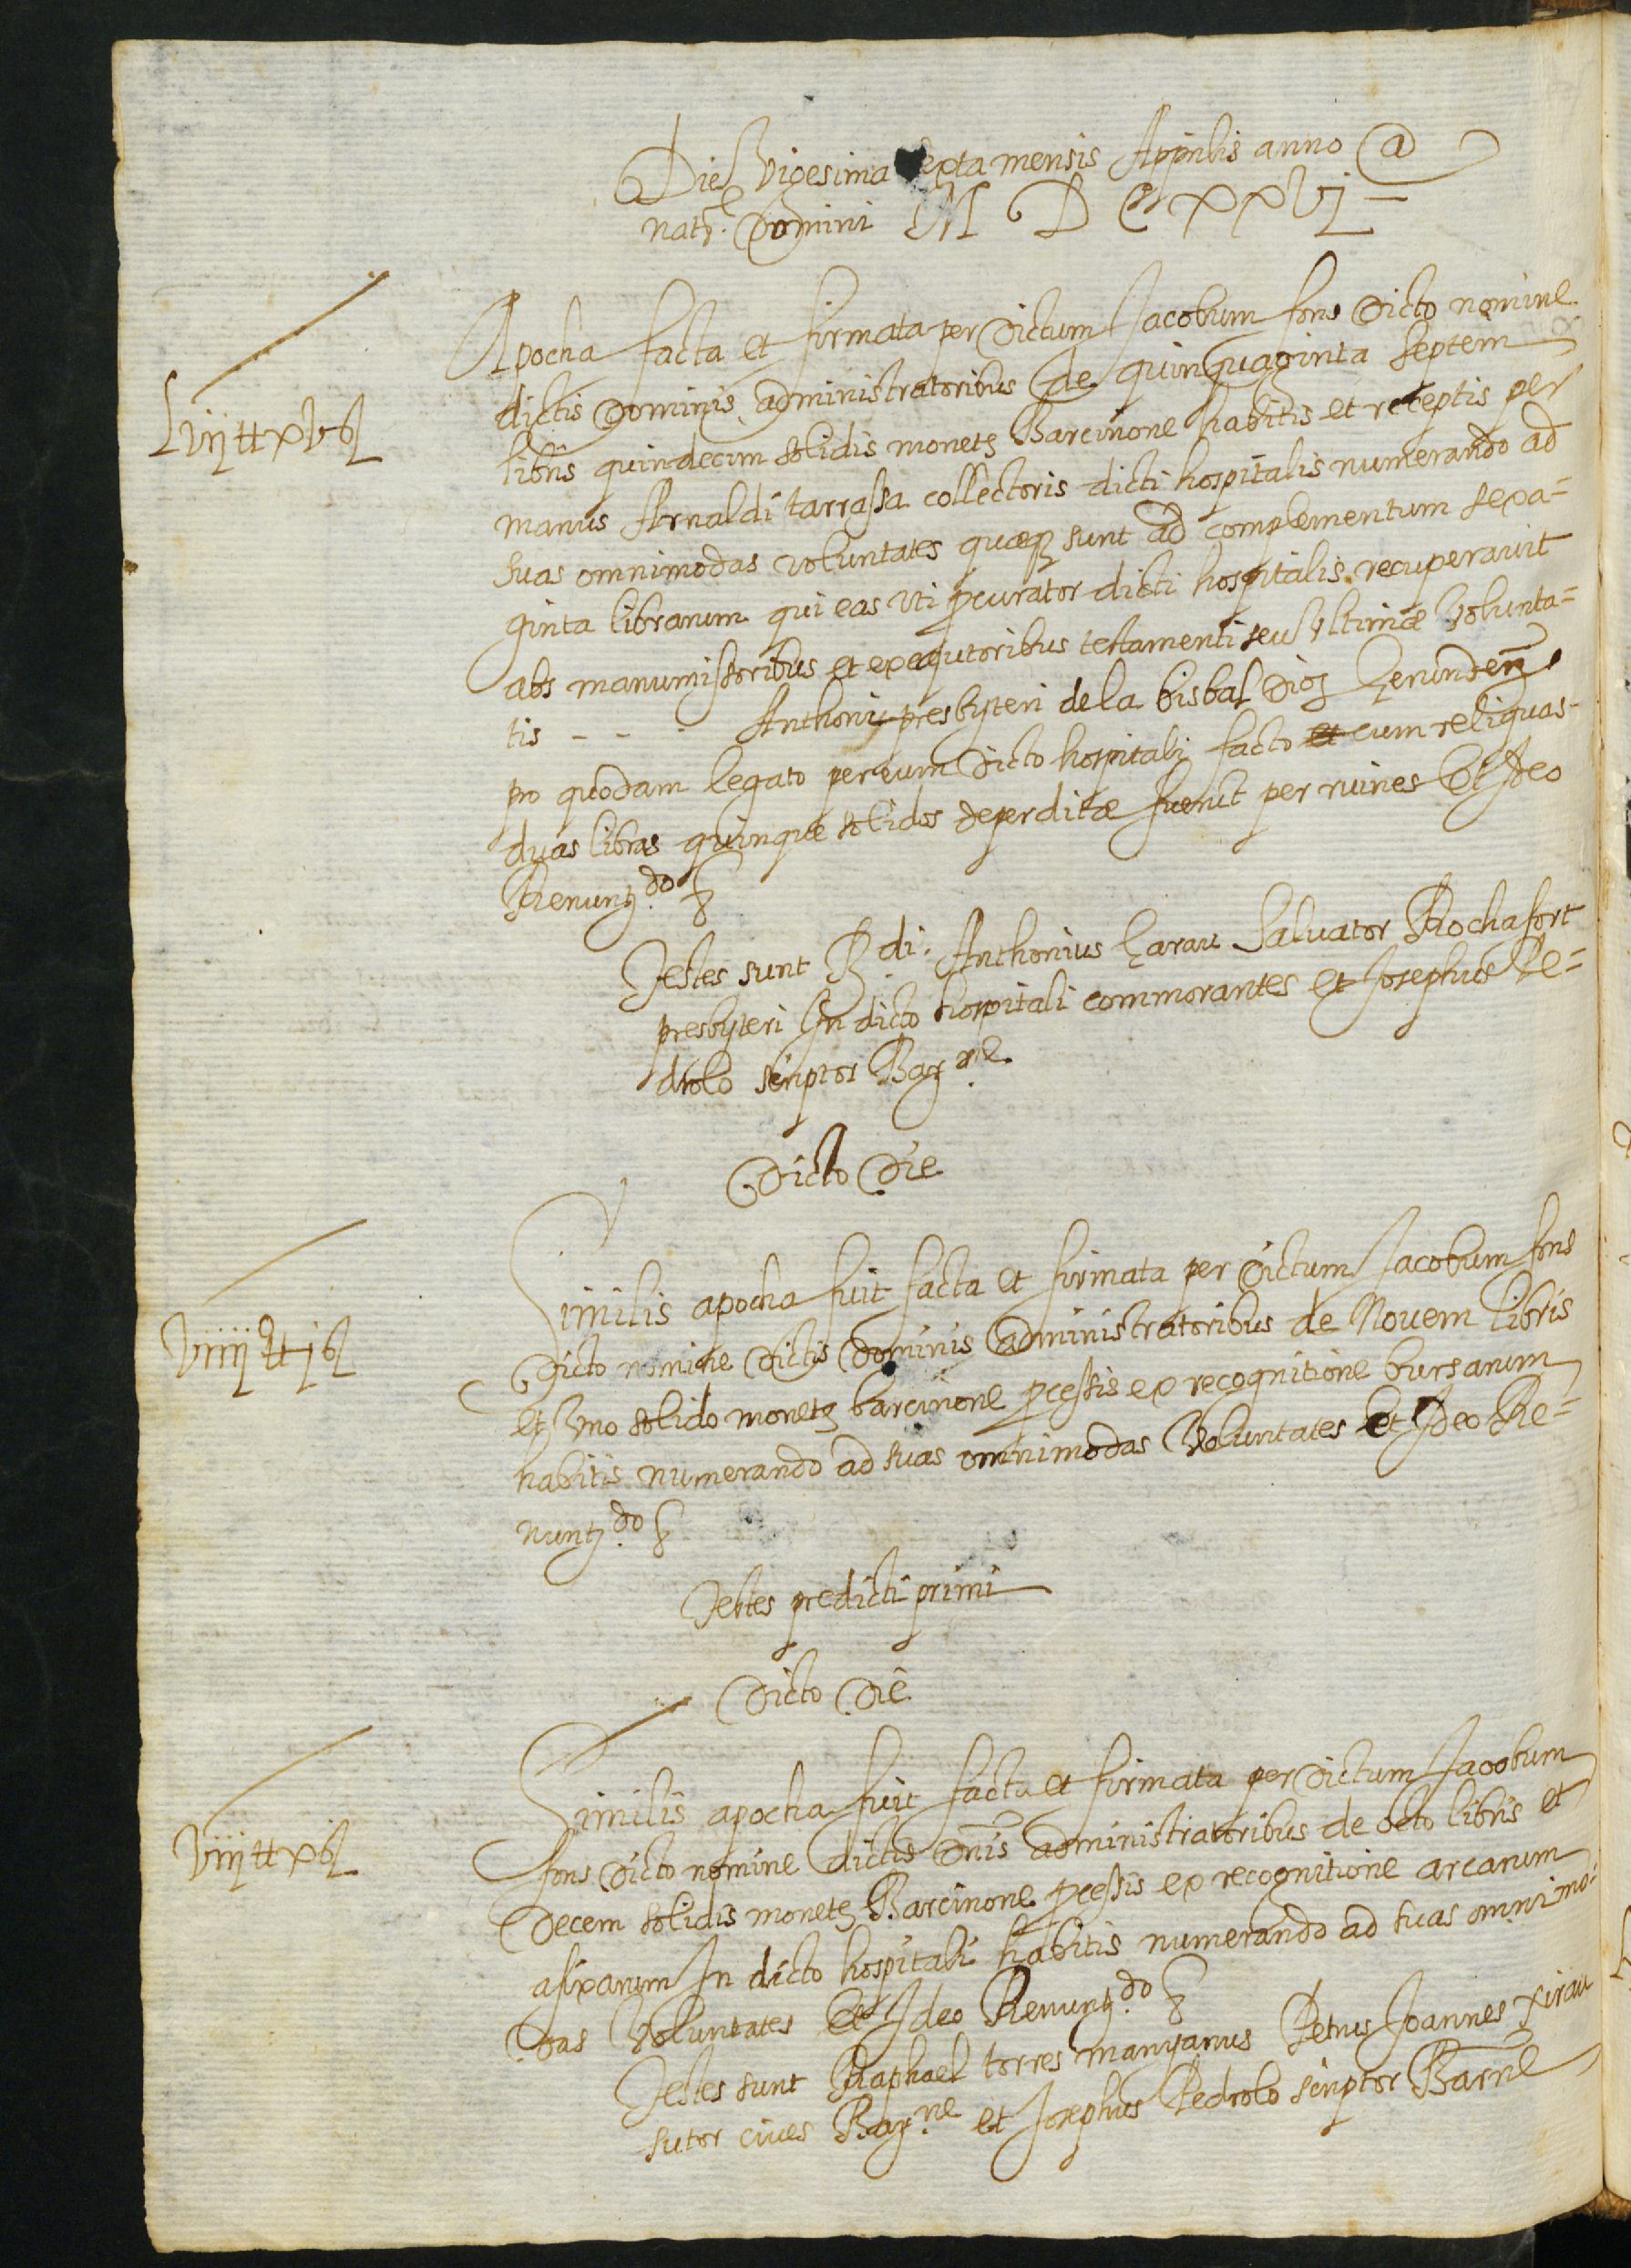 Die Vigesima sexta mensis Aprilis anno @
natt. Domini M D C xx vj
Lvij tt xv ß
Apocha facta et firmata per dictum Jacobum fons dicto nomine
dictis Dominis administratoribus de quinquaginta septem
libris quindecim solidis monetę Barcinone habitis et receptis per
manus Arnaldi tarrassa collectoris dicti hospitalis numerando ad
suas omnimodas voluntates quæq sunt ad complementum sexa=
ginta librarum qui eas uti pcurator dicti hospitalis recuperavit
abs manumissoribus et exequtoribus testamenti seu ultimæ volunta=
tis - - - Anthonij presbyteri de la bisbal Dioz Gerunden
pro quodam legato per eum dicto hospitali facto et cum reliquas
duas libras quinque solidos deperditæ fuerit per ruines Et Ideo
Renuntdo &
Testes sunt Rdi. Anthonius Garau Salvator Rochafort
presbyteri In dicto hospitali commorantes et Josephus Pe=
drolo scriptor Barne
Dicto Die
viiij tt j ß
Similis apocha fuit facta et firmata per dictum Jacobum fons
Dicto nomine dictis dominis administratoribus de Novem libris
et Uno solido monetę barcinone pcessis ex recognitione bursarum
habitis numerando ad suas omnimodas Voluntates Et Ideo Re=
nuntdo &
Testes predicti primi
Dicto Die
viij tt x ß
Similis apocha fuit facta et firmata per dictum Jacobum
fons dicto nomine dictis Dnis administratoribus de octo libris et
Decem solidis monetę Barcinone pcessis ex recognitione arcarum
asixarum In dicto hospitali habitis numerando ad suas omnimo-
das Voluntates Et Ideo Renuntdo &
Testes sunt Raphael torres manyanus Petrus Joannes xirau
sutor cives Barne et Josephus Pedrolo scriptor Barne